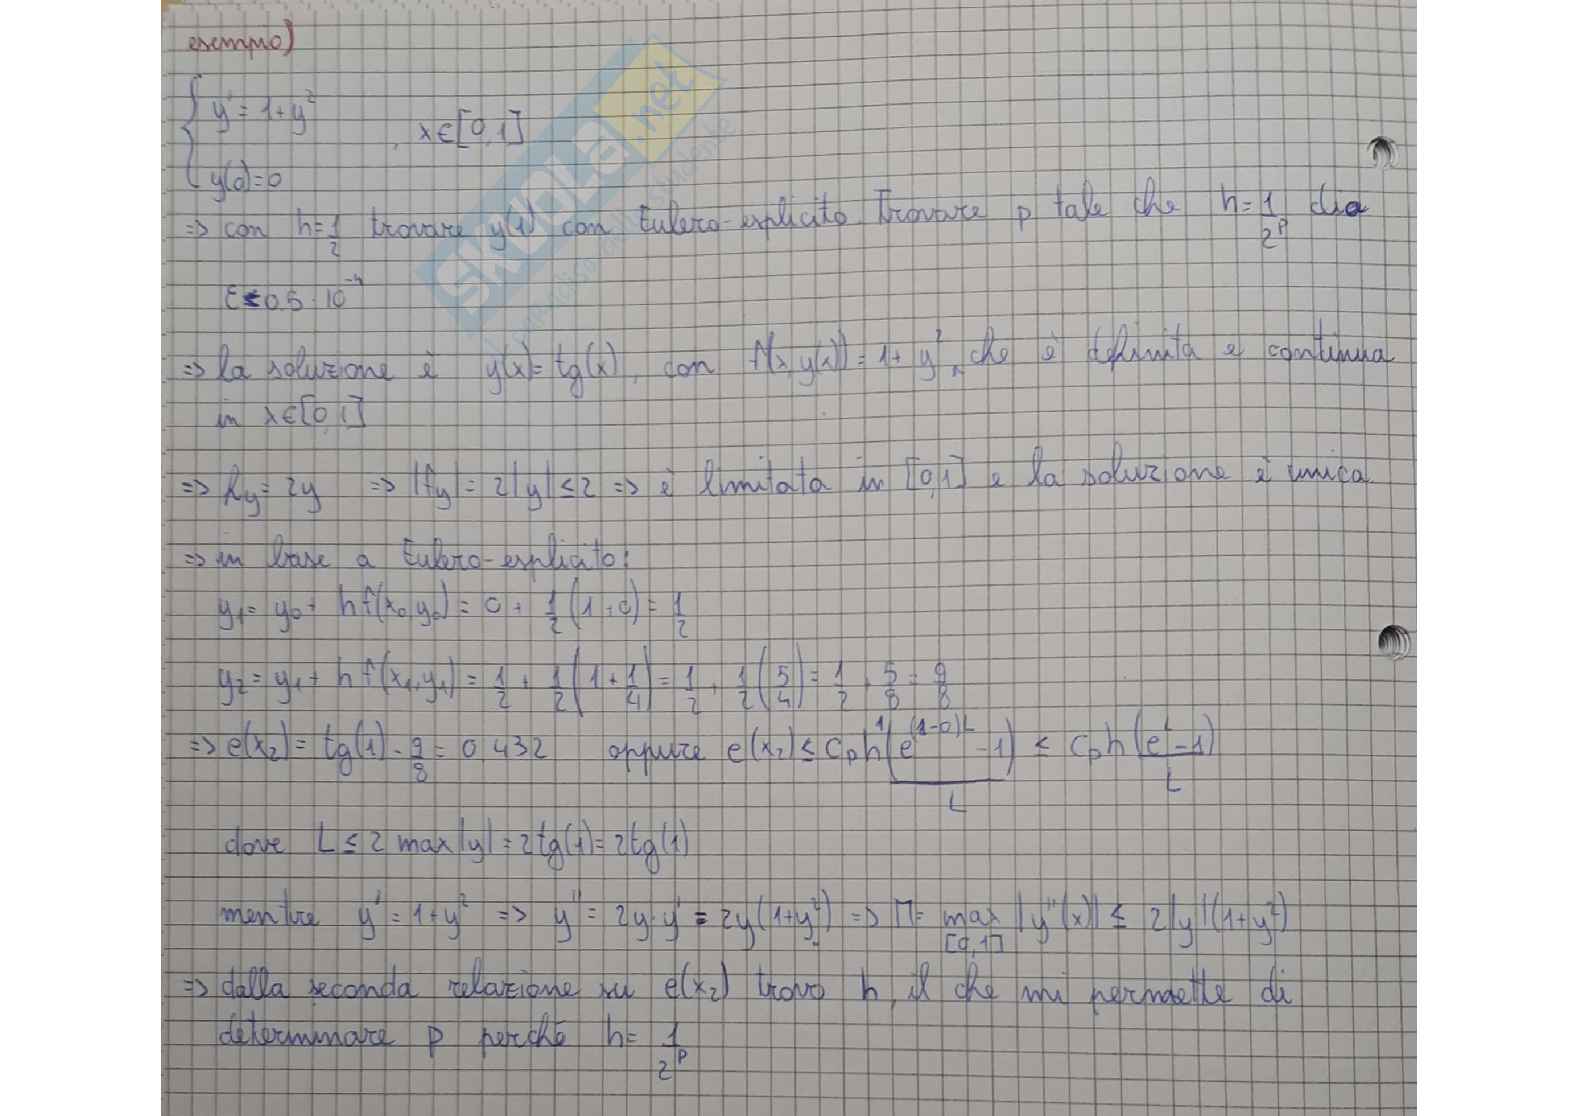 esempio)
y' = 1+y²
, x∈[0,1]
y(0)=0
=> con h=1/2 trovare y(1) con Eulero-esplicito. Trovare p tale che h=1/2^p dia
ε<0,5·10⁻⁴
=> la soluzione è y(x)=tg(x), con f(x,y(x))=1+y², che è definita e continua
in x∈[0,1]
=> fy=2y => |fy|=2|y|≤2 => è limitata in [0,1] e la soluzione è unica
=> in base a Eulero-esplicito:
y₁= y₀+ hf(x₀,y₀)=0+ 1/2(1+0)=1/2
y₂= y₁+ hf(x₁,y₁)=1/2+1/2(1+1/4)=1/2+1/2(5/4)=1/2+5/8=9/8
=> e(x₂)= tg(1)-9/8=0,432 oppure e(x₂)≤Cp h¹(e^(1-0)L -1)/L ≤ Cp h(e^L-1)/L
dove L≤2 max|y|=2tg(1)=2tg(1)
mentre y'=1+y² => y''= 2y·y' = 2y(1+y²) => M= max[0,1] |y''(x)| ≤ 2|y|(1+y²)
=> dalla seconda relazione su e(x₂) trovo h, il che mi permette di
determinare p perchè h= 1/2^p
SKUOLA.net